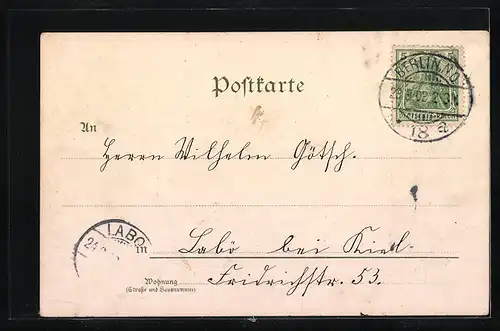 BERLIN N.O.
18 a
Postkarte
An
Herrn Wilhelm Götsch.
LABO
24
in
Labö bei Kiel.
Wohnung
(Straße und Hausnummer)
Fridrichstr. 53.